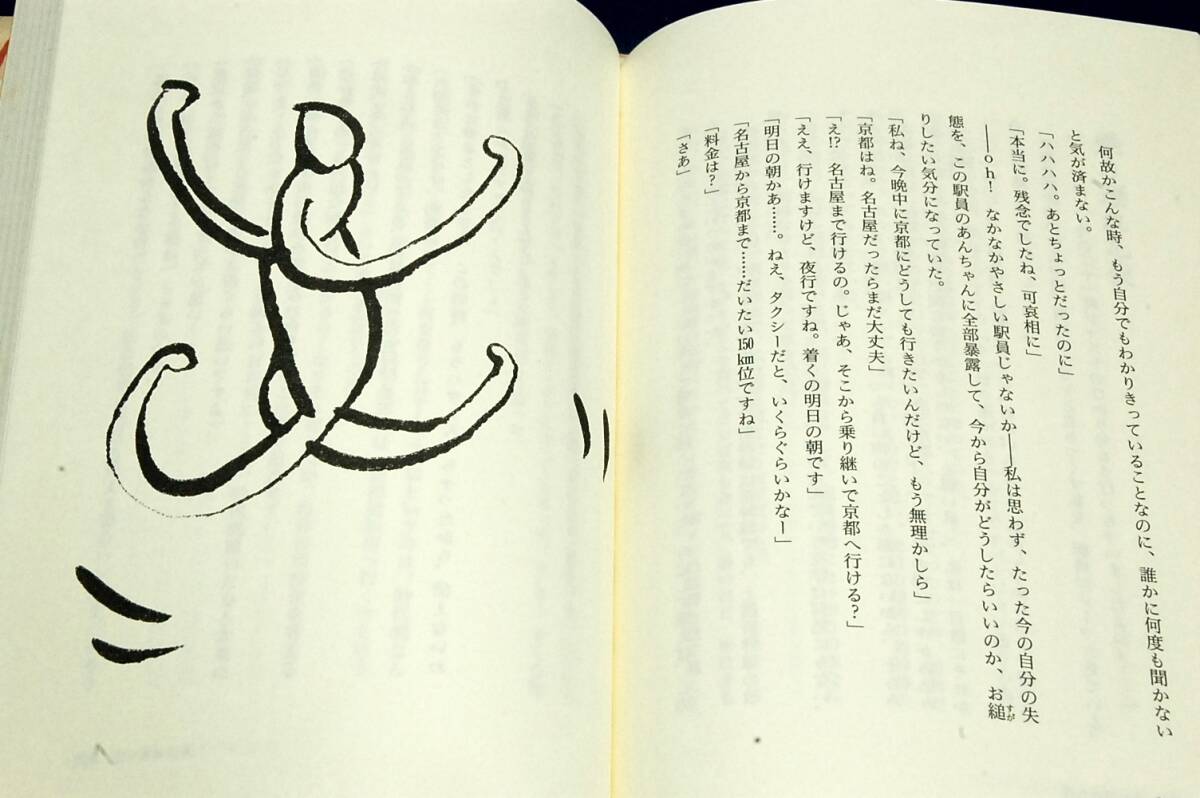 何故かこんな時、もう自分でもわかりきっていることなのに、誰かに何度も聞かない
と気が済まない。
「ハハハハ。あとちょっとだったのに」
「本当に。残念でしたね、可哀相に」
――oh! なかなかやさしい駅員じゃないか――私は思わず、たった今の自分の失
態を、この駅員のあんちゃんに全部暴露して、今から自分がどうしたらいいのか、お縋
すが
りしたい気分になっていた。
「私ね、今晩中に京都にどうしても行きたいんだけど、もう無理かしら」
「京都はね。名古屋だったらまだ大丈夫」
「え!? 名古屋まで行けるの。じゃあ、そこから乗り継いで京都へ行ける?」
「ええ、行けますけど、夜行ですね。着くの明日の朝です」
「明日の朝かあ……。ねえ、タクシーだと、いくらぐらいかなー」
「名古屋から京都まで……だいたい150km位ですね」
「料金は?」
「さあ」